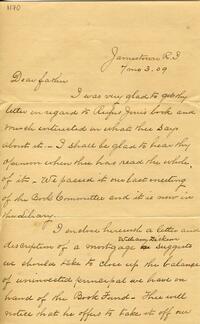 1170
Jamestown R.I
7 mo 3. 09
Dear father
I was very glad to get thy
letter in regard to Rufus Jones book and
much interested in what thee says
about it. - I shall be glad to hear thy
opinion when thee has read the whole
of it - We passed it our last meeting
of the Book Committee and it is now in
the library.
I enclose herewith a letter and
description of a mortgage William
suggests
we should take to close up the balance
of uninvested principal we have on
hand of the Book Fund - Thee will
notice that he offers to take it off our